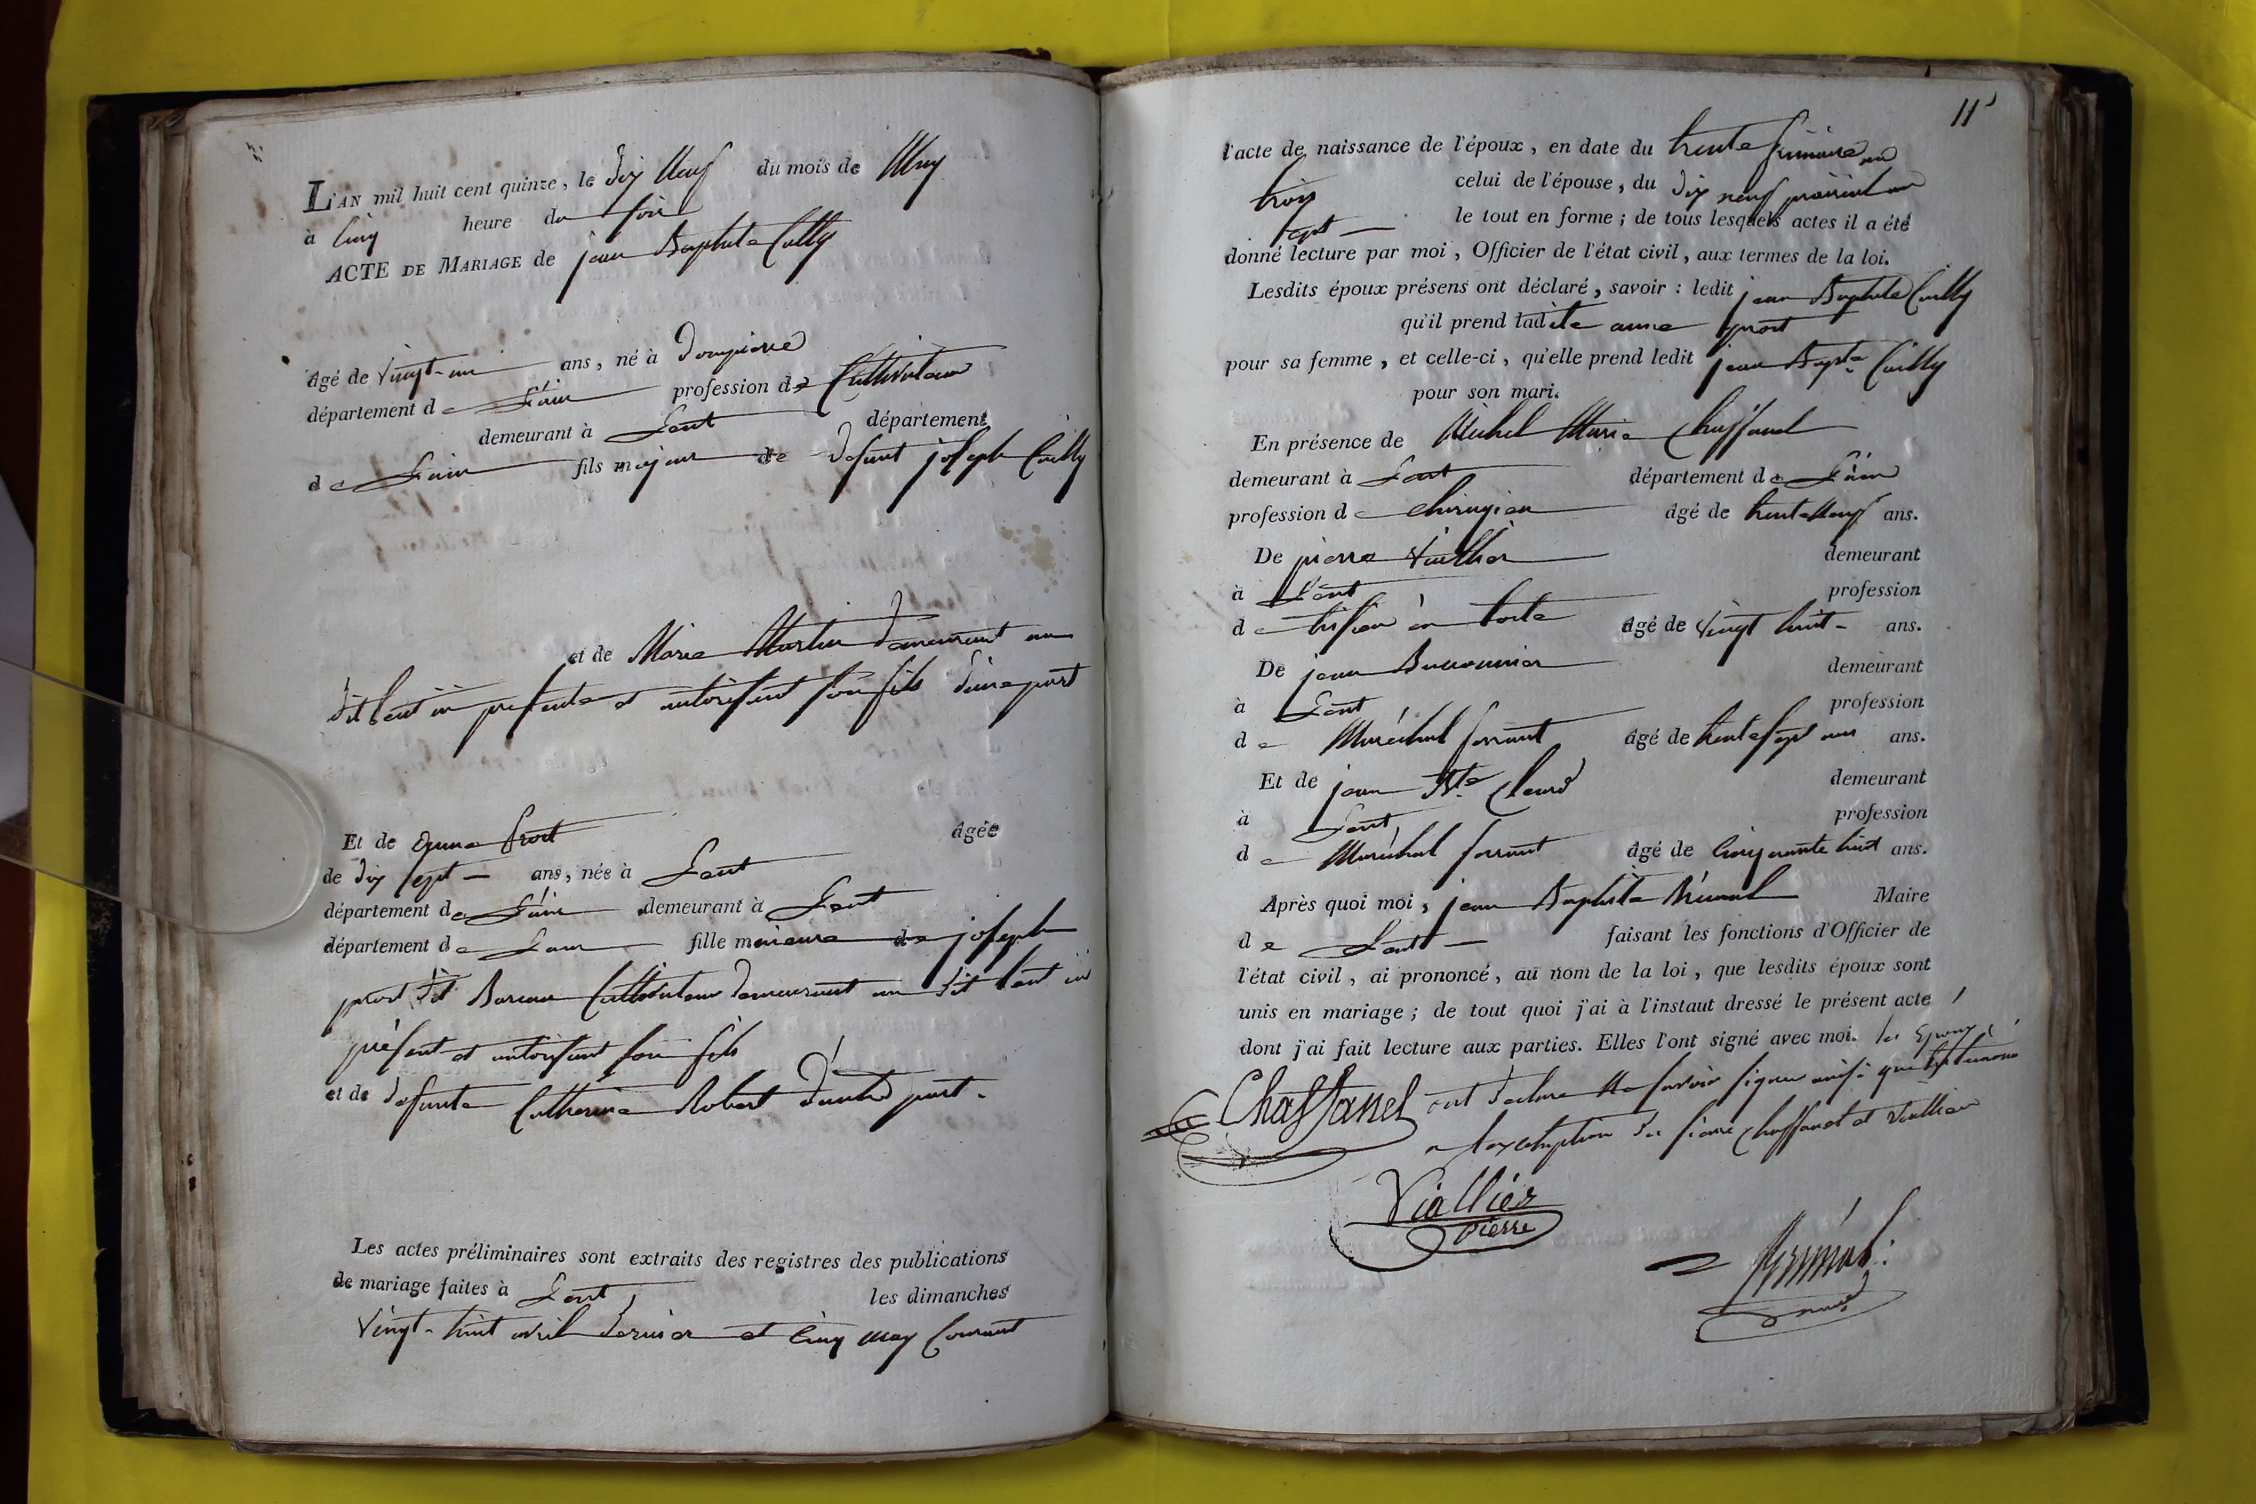 L'AN mil huit cent quinze, le dix Neuf du mois de May
à Cinq heure du soir
ACTE DE MARIAGE de jean Baptiste Cuilly
âgé de vingt-un ans, né à dompierre
département de L'ain profession de Cultivateur
demeurant à Lent département
de L'ain fils majeur de defunt joseph Cuilly
et de Marie Martin demeurant au
dit Lent ici presente et autorisant son fils d'une part
Et de anne prost âgée
de dix sept ans, née à Lent
département de L'ain demeurant à Lent
département de L'ain fille mineure de joseph
prost dit Cultivateur demeurant au dit Lent ici
présent et autorisant son fils
et de defunte Catherine Robert d'autre part.
Les actes préliminaires sont extraits des registres des publications
de mariage faites à Lent les dimanches
vingt-huit avril dernier et Cinq may Courant
11
l'acte de naissance de l'époux, en date du trente frimaire an
trois celui de l'épouse, du dix neuf prairial an
sept le tout en forme ; de tous lesquels actes il a été
donné lecture par moi, Officier de l'état civil, aux termes de la loi.
Lesdits époux présens ont déclaré, savoir : ledit jean Baptiste Cuilly
qu'il prend ladite anne prost
pour sa femme, et celle-ci, qu'elle prend ledit jean Bapte Cuilly
pour son mari.
En présence de Michel Marie Chaffanel
demeurant à Lent département de L'ain
profession de chirugien âgé de trente Neuf ans.
De pierre Viallier demeurant
à Lent profession
de âgé de vingt huit ans.
De jean demeurant
à Lent profession
de Maréchal ferrant âgé de trente sept ans ans.
Et de jean Bte demeurant
à Lent profession
de Maréchal ferrant âgé de Cinquante huit ans.
Après quoi moi, jean Baptiste Brunal Maire
de Lent faisant les fonctions d'Officier de
l'état civil, ai prononcé, au nom de la loi, que lesdits époux sont
unis en mariage ; de tout quoi j'ai à l'instaut dressé le présent acte
dont j'ai fait lecture aux parties. Elles l'ont signé avec moi. les Epoux
Chaffanel ont declaré Ne savoir signer ainsi que les temoins
a l'exception de Chaffanel et Viallier
Viallier
Pierre